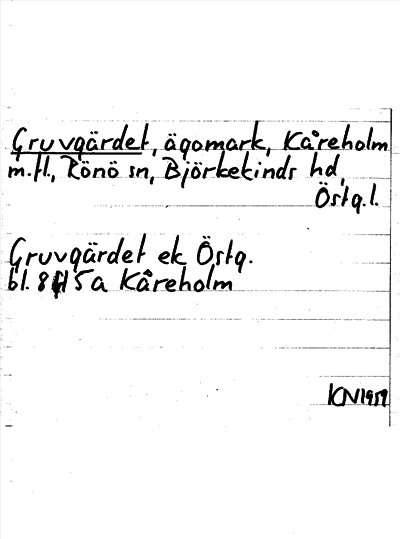 Gruvgärdet, ägomark, Kåreholm
m.fl., Rönö sn, Björkekinds hd,
Östg.l.
Gruvgärdet ek Östg.
bl. 8H5a Kåreholm
KN1959